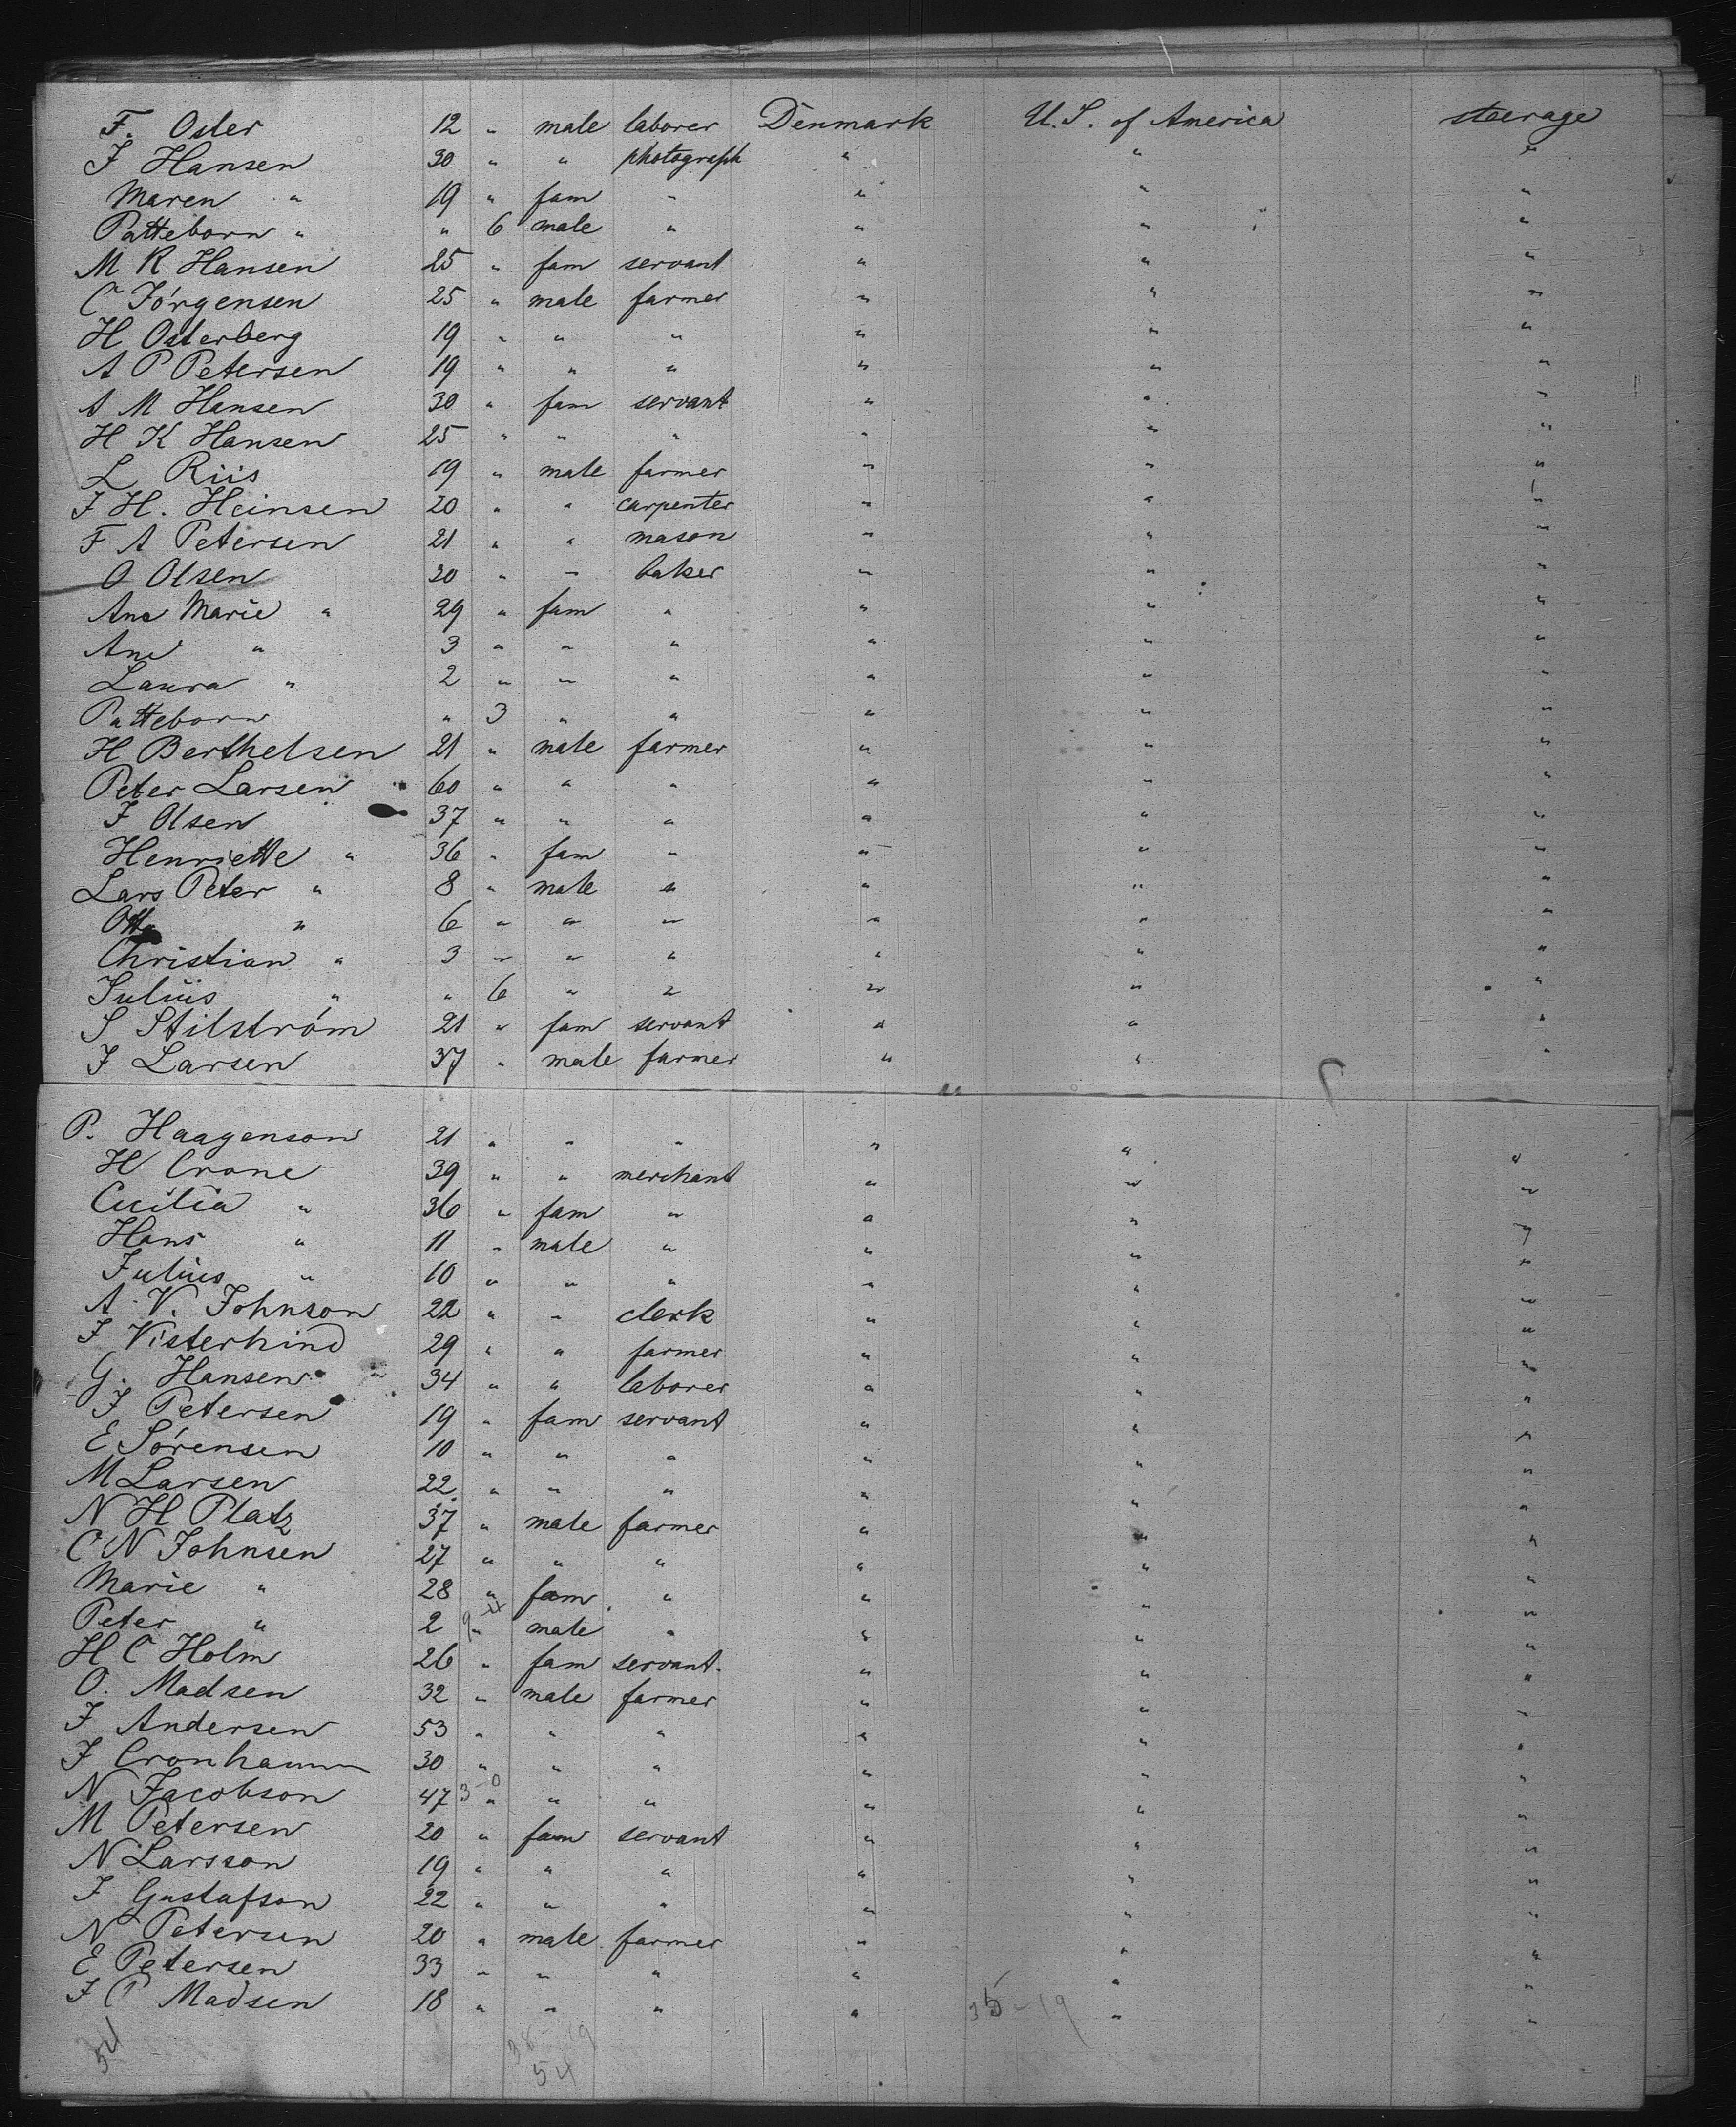 F. Oster 12 " male laborer Denmark U.S. of America steerage
J Hansen 30 " " photograph " " "
Maren " 19 " fam " " " "
Patteborn " " 6 male " " " "
M K Hansen 25 " fam servant " " "
C Jörgensen 25 " male farmer " " "
H Osterberg 19 " " " " " "
A P Petersen 19 " " " " " "
A M Hansen 30 " fam servant " " "
H K Hansen 25 " " " " " "
L Riis 19 " male farmer " " "
J H. Heinsen 20 " " carpenter " " "
F A Petersen 21 " " mason " " "
O Olsen 30 " " baker " " "
Ana Marie " 29 " fam " " " "
Ane " 3 " " " " " "
Laura " 2 " " " " " "
Patteborn " 3 " " " " "
H Berthelsen 21 " male farmer " " "
Peter Larsen 60 " " " " " "
J Olsen 37 " " " " " "
Henriette " 36 " fam " " " "
Lars Peter " 8 " male " " " "
Otto " 6 " " " " " "
Christian " 3 " " " " " "
Julius " " 6 " " " " "
S Stilström 21 " fam servant " " "
J Larsen 37 " male farmer " " "
P. Haagenson 21 " " " " " "
H Crone 39 " " merchant " " "
Cecilia " 36 " fam " " " "
Hans " 11 " male " " " "
Julius " 10 " " " " " "
A. V. Johnson 22 " " clerk " " "
J Visterhind 29 " " farmer " " "
G. Hansen 34 " " laborer " " "
J Petersen 19 " fam servant " " "
E Sörensen 10 " " " " " "
M Larsen 22 " " " " " "
N H Platz 37 " male farmer " " "
C N Johnsen 27 " " " " " "
Marie " 28 " fam " " " "
Peter " 2 " male " " " "
H C Holm 26 " fam servant. " " "
O. Madsen 32 " male farmer " " "
J Andersen 53 " " " " " "
J 30 " " " " " "
N Jacobson 47 " " " " " "
M Petersen 20 " fam servant " " "
N Larsson 19 " " " " " "
J Gustafson 22 " " " " " "
N Petersen 20 " male farmer " " "
E Petersen 33 " " " " " "
J P Madsen 18 " " " " " "
54
54